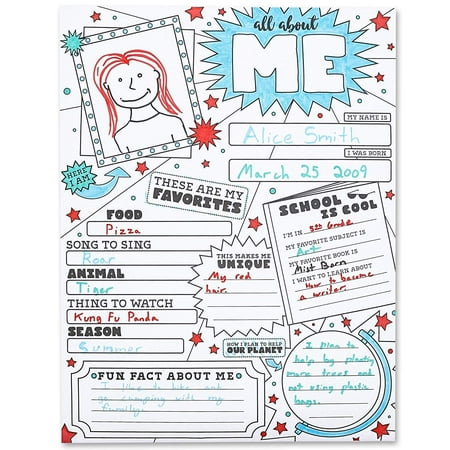 all about
ME
MY NAME IS
Alice Smith
I WAS BORN
March 25 2009
HERE I AM
THESE ARE MY
FAVORITES
FOOD
Pizza
SONG TO SING
Roar
ANIMAL
Tiger
THING TO WATCH
Kung Fu Panda
SEASON
Summer
THIS MAKES ME
UNIQUE
My red
hair.
SCHOOL
IS COOL
I'M IN 5th Grade
MY FAVORITE SUBJECT IS
Art
MY FAVORITE BOOK IS
Mist Born
I WANT TO LEARN ABOUT
How to become
a writer.
HOW I PLAN TO HELP
OUR PLANET
I plan to
help by planting
more trees and
not using plastic
bags.
FUN FACT ABOUT ME
I like to hike and
go camping with my
family!